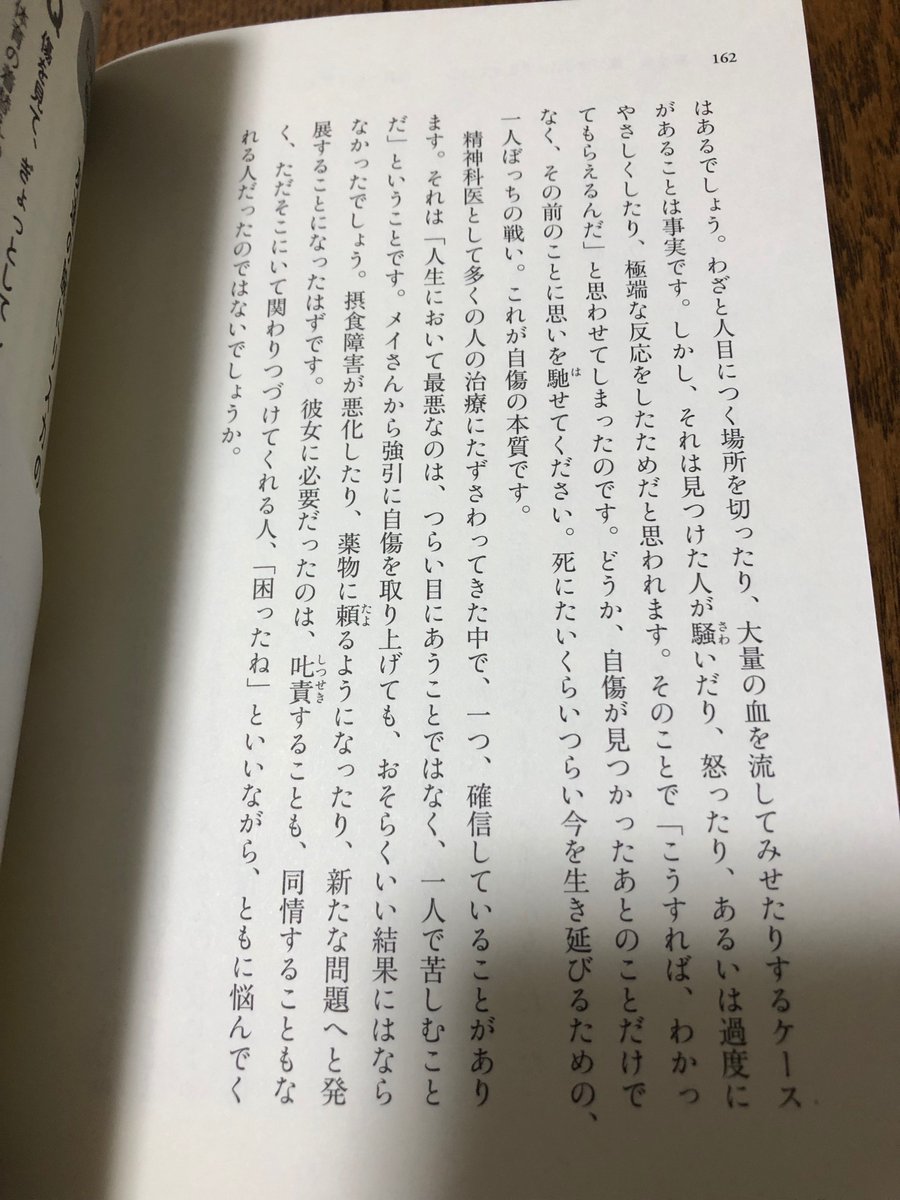 162
はあるでしょう。わざと人目につく場所を切ったり、大量の血を流してみせたりするケース
があることは事実です。しかし、それは見つけた人が騒いだり、怒ったり、あるいは過度に
やさしくしたり、極端な反応をしたためだと思われます。そのことで「こうすれば、わかっ
てもらえるんだ」と思わせてしまったのです。どうか、自傷が見つかったあとのことだけで
なく、その前のことに思いを馳せてください。死にたいくらいつらい今を生き延びるための、
一人ぼっちの戦い。これが自傷の本質です。
精神科医として多くの人の治療にたずさわってきた中で、一つ、確信していることがあり
ます。それは「人生において最悪なのは、つらい目にあうことではなく、一人で苦しむこと
だ」ということです。メイさんから強引に自傷を取り上げても、おそらくいい結果にはなら
なかったでしょう。摂食障害が悪化したり、薬物に頼るようになったり、新たな問題へと発
展することになったはずです。彼女に必要だったのは、叱責することも、同情することもな
く、ただそこにいて関わりつづけてくれる人、「困ったね」といいながら、ともに悩んでく
れる人だったのではないでしょうか。